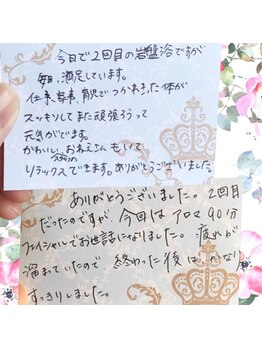 今日で2回目の岩盤浴ですが
毎回、満足しています。
仕事、家事、育児でつかれきった体が
スッキリしてまた頑張ろうって
元気がでます。
かわいい、おねえさんもいて
リラックスできます。ありがとうございました。
ありがとうございました。2回目
だったのですが、今回はアロマ90分
フェイシャルでお世話になりました。疲れが
溜まっていたので終わった後は、かなり
すっきりしました。